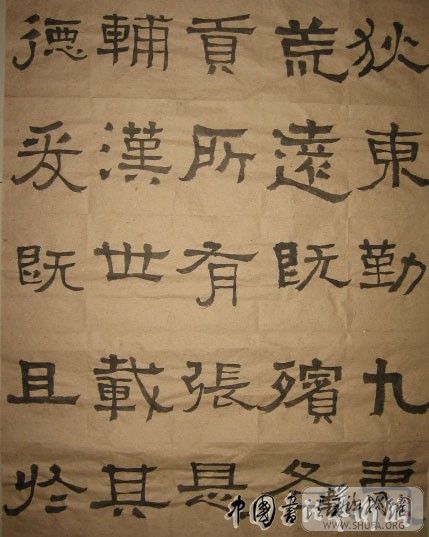 狄東勤九夷
荒遠既殯各
貢所有張是
輔漢世載其
德爰既且於
中國书法
WWW.SHUFA.ORG